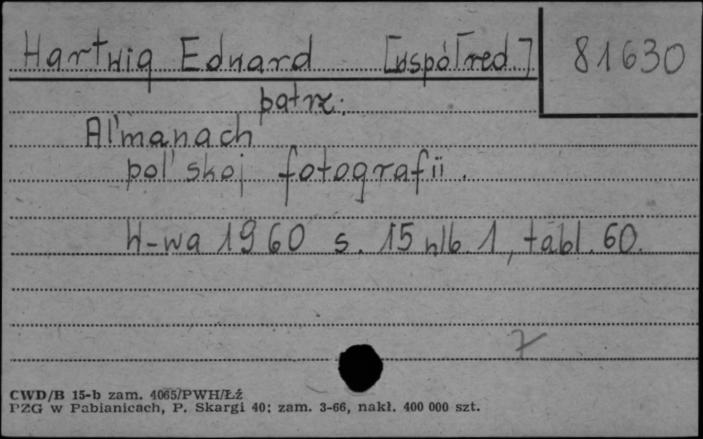 Hartwig Edward [współred.] 81630
patrz:
Al'manach
pol'skoj fotografii.
W-wa 1960 s. 15 nlb. 1, tabl. 60.
7
CWD/B 15-b zam. 4065/PWH/Łź
PZG w Pabianicach, P. Skargi 40; zam. 3-66, nakł. 400 000 szt.